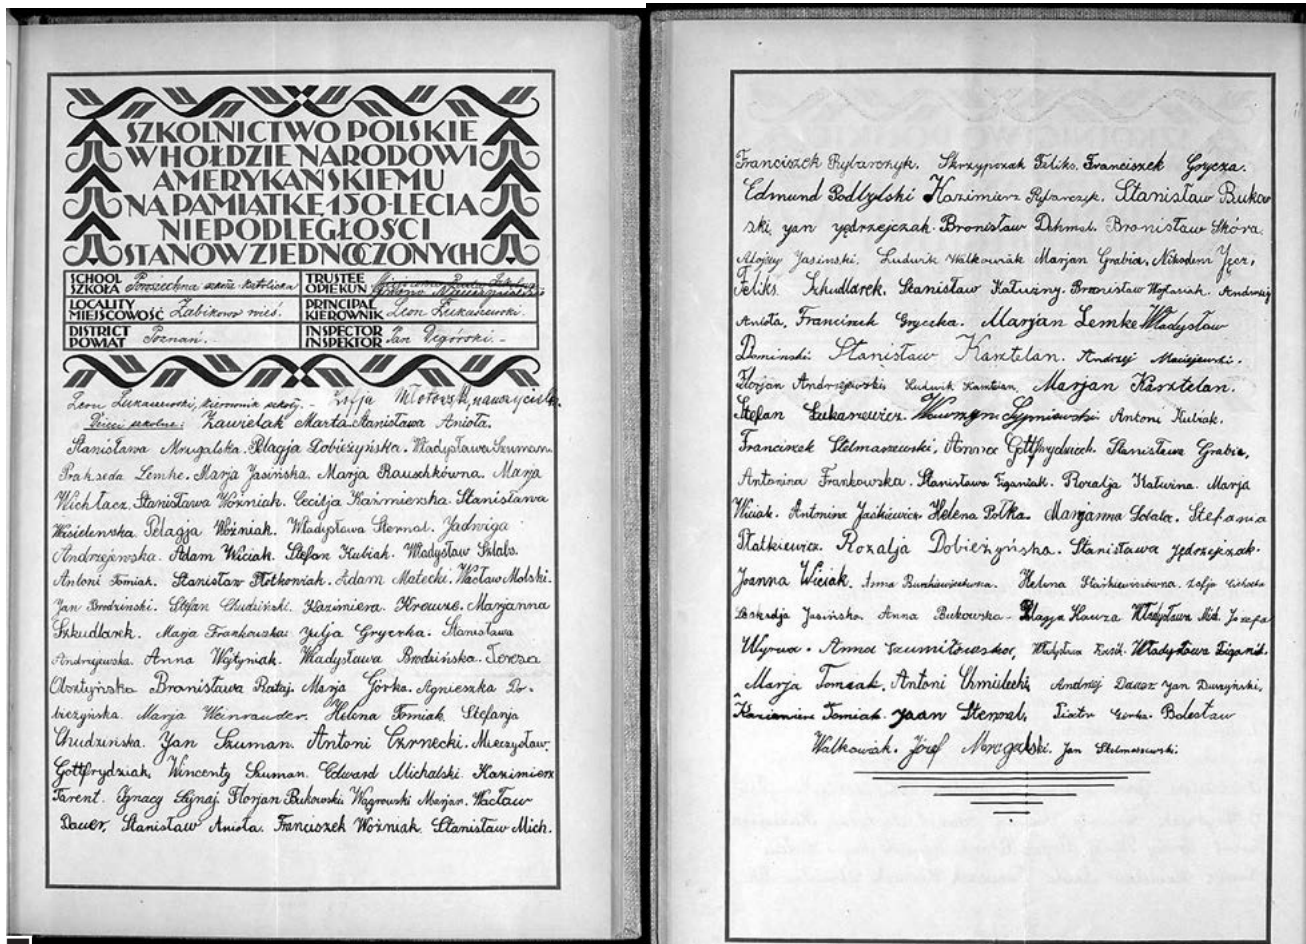 SZKOLNICTWO POLSKIE
W HOŁDZIE NARODOWI
AMERYKAŃSKIEMU
NA PAMIĄTKĘ 150-LECIA
NIEPODLEGŁOŚCI
STANÓW ZJEDNOCZONYCH
SCHOOL SZKOŁA Powszechna szkoła katolicka
TRUSTEE OPIEKUN
LOCALITY MIEJSCOWOŚĆ Żabikowo wieś.
PRINCIPAL KIEROWNIK Leon Łukaszewski.
DISTRICT POWIAT Poznań.
INSPECTOR INSPEKTOR Degórski.
Leon Łukaszewski, kierownik szkoły. - Zofja
Dzieci szkolne: Marta. Stanisława Anioła.
Stanisława Mrugalska. Pelagja Dobieżyńska. Władysława Szuman.
Prakseda Lemke. Marja Jasińska. Marja Rauschkówna. Marja
Wichłacz. Stanisława Woźniak. Cecilja Kaźmierska. Stanisława
Pelagja Woźniak. Władysława Sternal. Jadwiga
Andrzejewska. Adam Wiciak. Stefan Kubiak. Władysław Szlabs.
Antoni Tomiak. Stanisław Płotkowiak. Adam Matecki. Wacław Molski.
Jan Brodziński. Stefan Chudziński. Kazimiera Krauze. Marjanna
Szkudlarek. Marja Frankowska. Julja Gryczka. Stanisława
Andrzejewska. Anna Wojtyniak. Władysława Brodzińska. Teresa
Olsztyńska Bronisława Rataj. Marja Górka. Agnieszka Do-
bieżyńska. Marja Weinrauder. Helena Tomiak. Stefanja
Chudzińska. Jan Szuman. Antoni Czrnecki. Mieczysław.
Gottfrydziak, Wincenty Szuman. Edward Michalski. Kazimierz
Parent. Ignacy Florjan Bukowski Wągrowski Marjan. Wacław
Dauer, Stanisław Anioła. Franciszek Woźniak. Stanisław Mich.
Franciszek Rybarczyk. Skrzypczak Feliks. Franciszek Grycza.
Edmund Kazimierz Rybarczyk. Stanisław Bukow
ski, Jan Jędrzejczak. Bronisław Dehmel. Bronisław Skóra.
Alojzy Jasiński. Ludwik Walkowiak Marjan Grabia, Nikodem
Feliks Szkudlarek. Stanisław Katuzny. Bronisław Wojtasiak. Andrzej
Anioła, Franciszek Gryczka. Marjan Lemke Władysław
Domiński Stanisław Kasztelan. Andrzej Maciejewski.
Florjan Andrzejewski Ludwik Marjan Kasztelan.
Stefan Łukaszewicz. Wawrzyn Sypniewski Antoni Kubiak.
Franciszek Stelmaszewski, Anna Stanisława Grabia,
Antonina Frankowska. Stanisława Figaniak. Rozalja Katurna. Marja
Wiciak. Antonina Jaśkiewicz. Helena Polka. Marjanna Stefania
Płatkiewicz. Rozalja Dobieżyńska. Stanisława Jędrzejczak.
Joanna Wiciak. Anna Helena Zofja Cichocka
Jasińska. Anna Bukowska. Pelagja Kauza Władysława Mich. Józefa
Wyrwa. Anna Szumiłowska, Władysława Władysława Figaniak.
Marja Tomiak. Antoni Chmielecki, Andrzej Dauer. Jan Duszyński,
Kazimierz Tomiak. Jaan Sternal, Piotr Górka. Bolesław
Walkowiak. Józef Mrugalski. Jan Stelmaszewski.